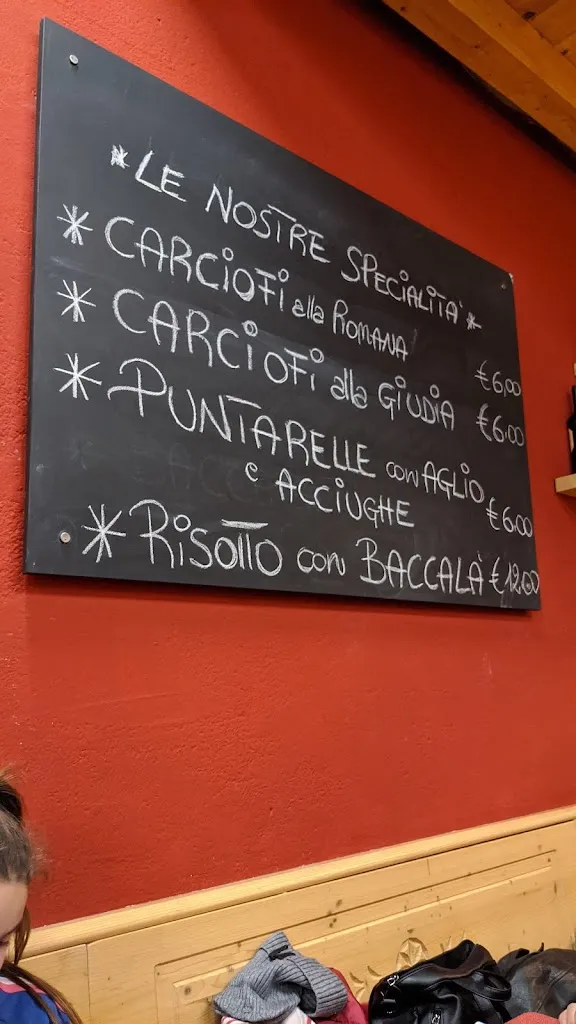 *LE NOSTRE SPECIALITA'*
* CARCIOFI alla ROMANA €6,00
* CARCIOFI alla GIUDIA €6.00
* PUNTARELLE con AGLIO
e ACCIUGHE €6.00
* RISOTTO con BACCALÀ €12.00